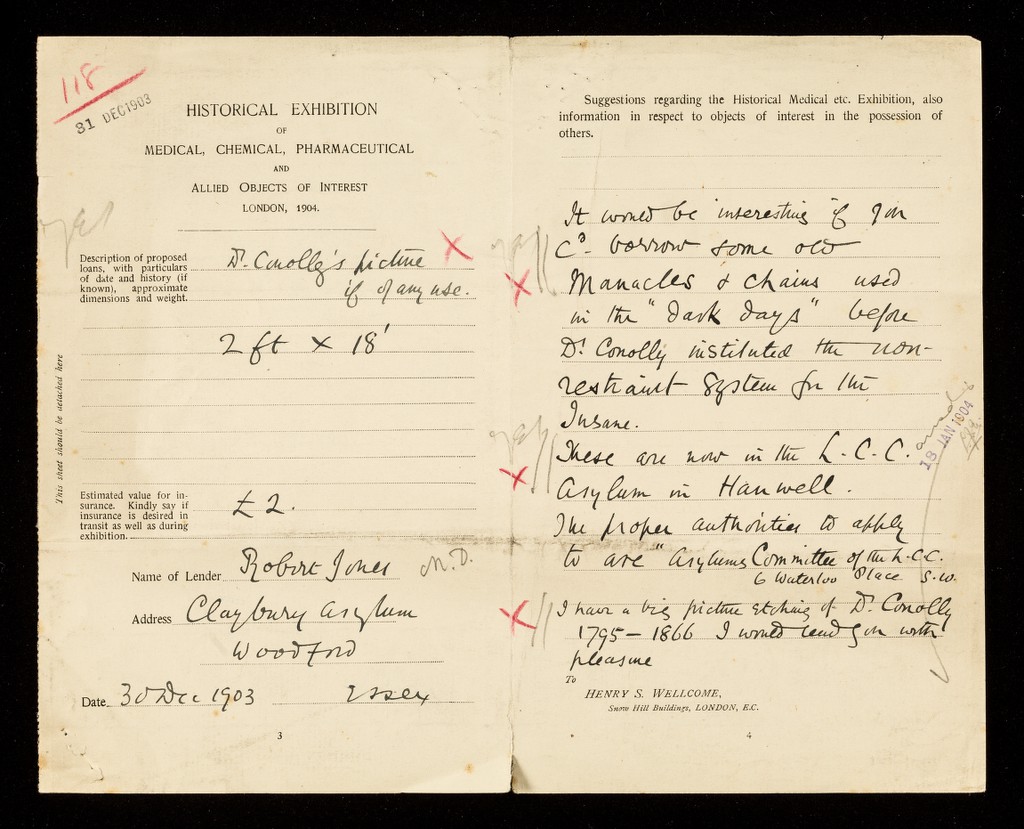 118
31 DEC 1903
HISTORICAL EXHIBITION
OF
MEDICAL, CHEMICAL, PHARMACEUTICAL
AND
ALLIED OBJECTS OF INTEREST
LONDON, 1904.
yes
Description of proposed
loans, with particulars
of date and history (if
known), approximate
dimensions and weight.
Dr. Conolly's picture
if of any use.
2 ft × 18'
This sheet should be detached here
Estimated value for in-
surance. Kindly say if
insurance is desired in
transit as well as during
exhibition.
£2.
Name of Lender Robert Jones M.D.
Address Claybury Asylum
Woodford
Date 30 Dec 1903 Essex
3
Suggestions regarding the Historical Medical etc. Exhibition, also
information in respect to objects of interest in the possession of
others.
It would be interesting if you
cd. borrow some old
Manacles & chains used
in the "dark days" before
Dr. Conolly instituted the non-
restraint system for the
Insane.
These are now in the L.C.C.
Asylum in Hanwell.
The proper authorities to apply
to are "Asylums Committee of the L.C.C.
6 Waterloo Place S.W.
I have a big picture etching of Dr. Conolly
1795 – 1866 I would lend you with
pleasure
18 JAN 1904
To
HENRY S. WELLCOME,
Snow Hill Buildings, LONDON, E.C.
4